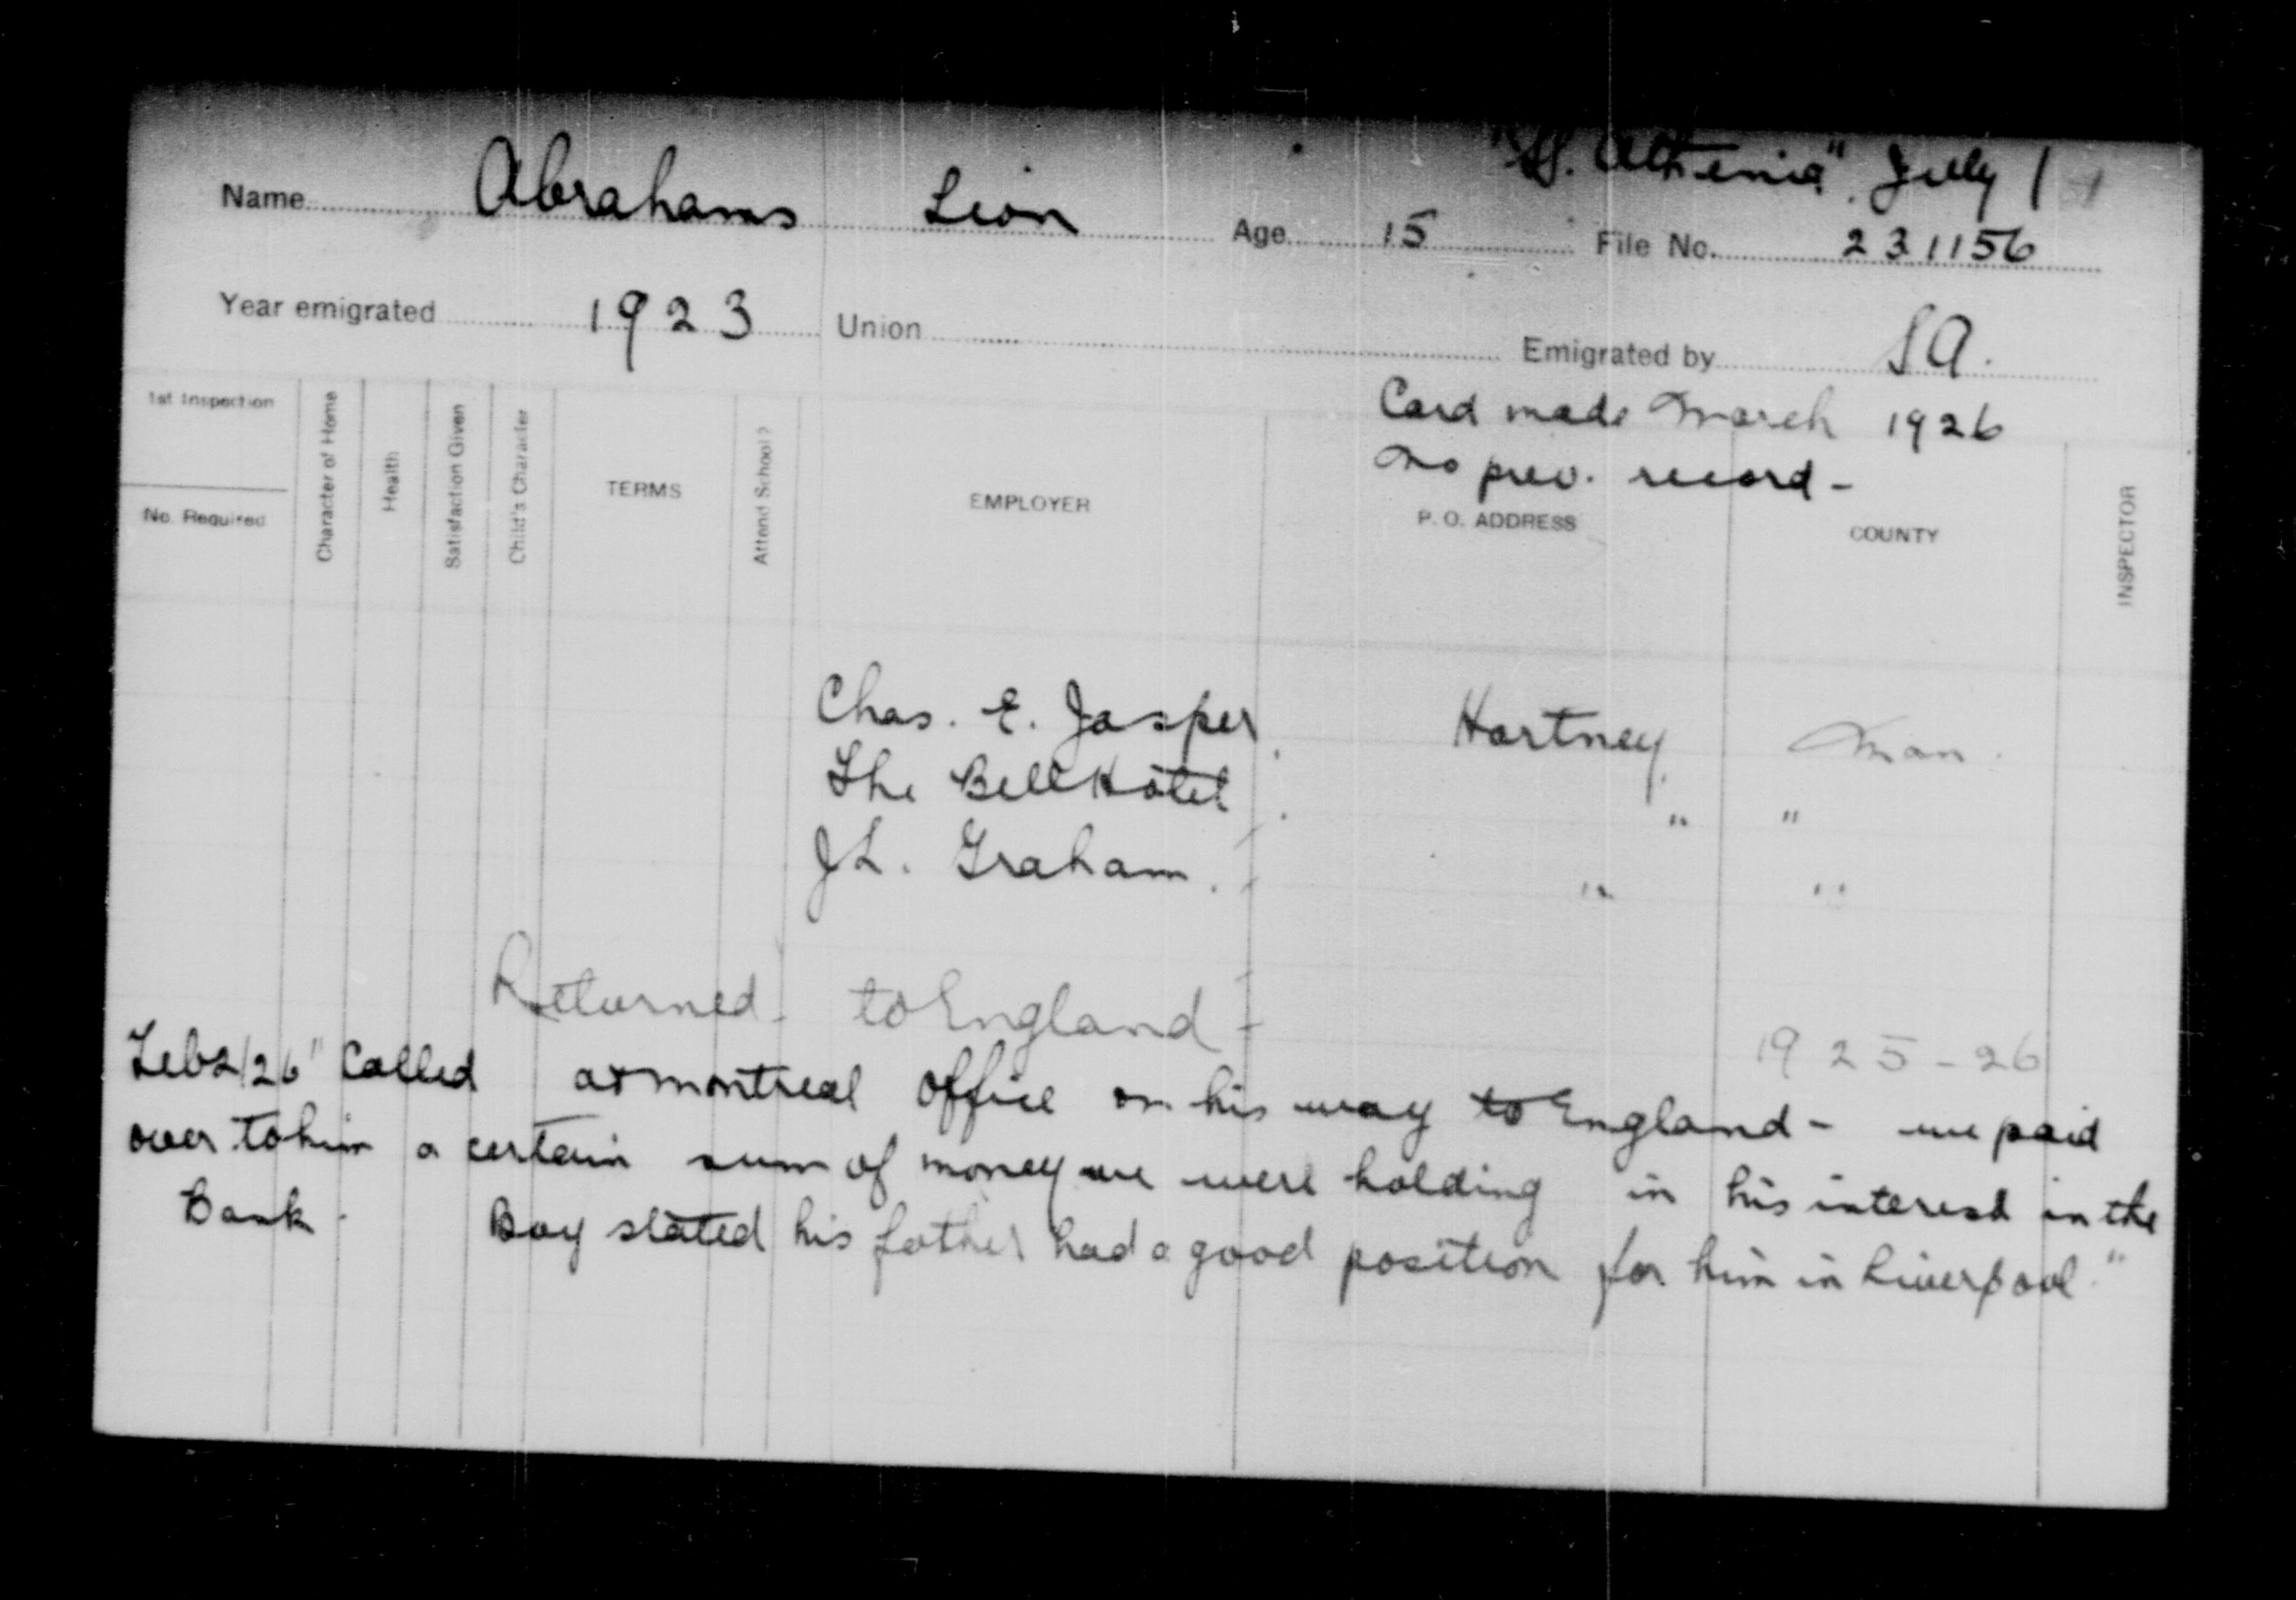 "SS. Athenia". July 1
Name Abrahams Leon Age 15 File No. 231156
Year emigrated 1923 Union Emigrated by S A.
Card made March 1926
No prev. record -
1st Inspection
No. Required
Character of Home
Health
Satisfaction Given
Child's Character
TERMS
Attend School?
EMPLOYER
P. O. ADDRESS
COUNTY
INSPECTOR
Chas. E. Jasper. Hartney. Man.
The Bell Hotel. " "
J L. Graham. " "
Returned to England - 1925-26
Feb 2/26 " Called at Montreal office on his way to England - we paid
over to him a certain sum of money we were holding in his interest in the
Bank. Boy stated his father had a good position for him in Liverpool."